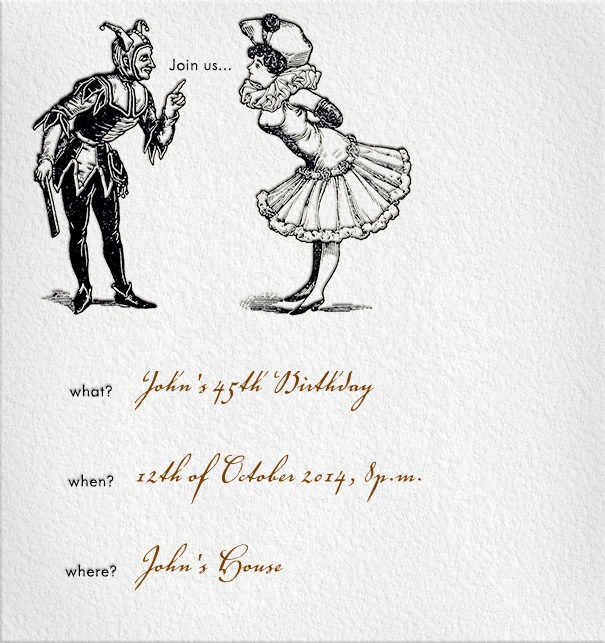 Join us...
what? John's 45th Birthday
when? 12th of October 2014, 8p.m.
where? John's House